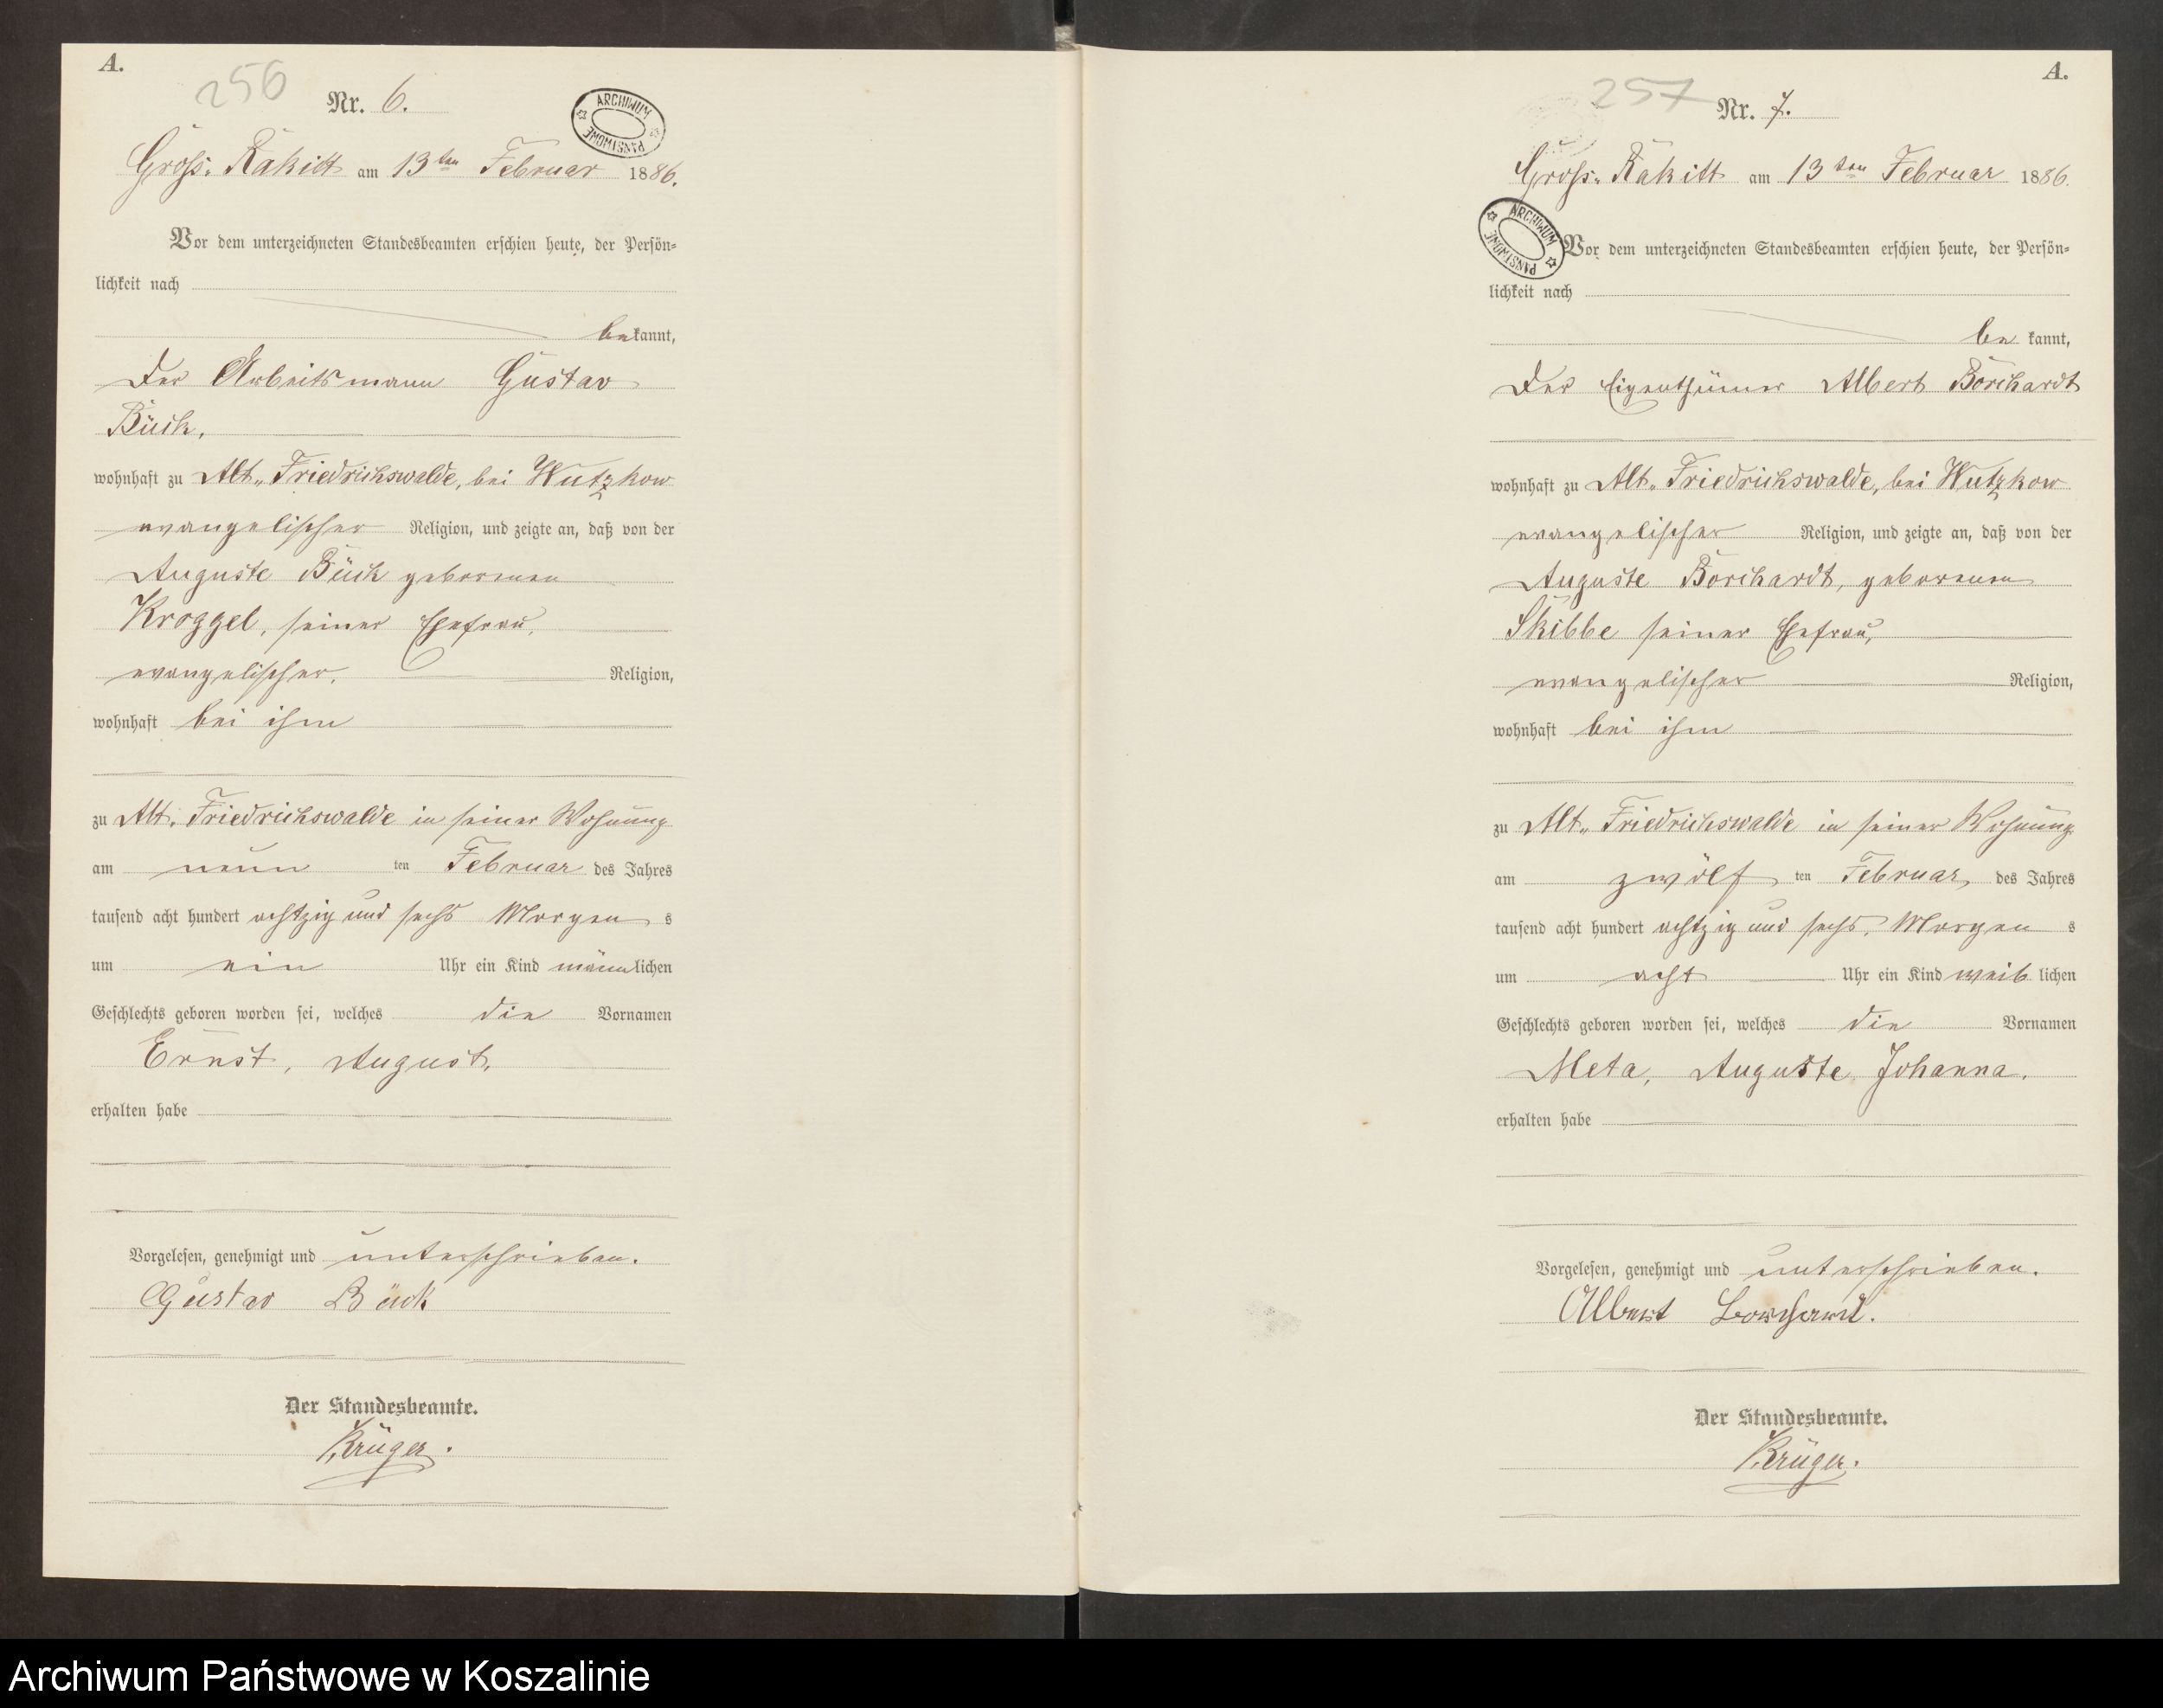 A.
256
Nr. 6.
ARCHIWUM PAŃSTWOWE
Gross-Rakitt am 13ten Februar 1886.
Vor dem unterzeichneten Standesbeamten erschien heute, der Persön-
lichkeit nach
bekannt,
Der Arbeitsmann Gustav
Bück,
wohnhaft zu Alt-Friedrichswalde, bei Wutzkow
evangelischer Religion, und zeigte an, daß von der
Auguste Bück geborenen
Kroggel, seiner Ehefrau,
evangelischer. Religion,
wohnhaft bei ihm
zu Alt-Friedrichswalde in seiner Wohnung
am neun ten Februar des Jahres
tausend acht hundert achtzig und sechs Morgen s
um ein Uhr ein Kind männlichen
Geschlechts geboren worden sei, welches die Vornamen
Ernst, August,
erhalten habe
Vorgelesen, genehmigt und unterschrieben.
Gustav Bück
Der Standesbeamte.
Krüger.
A.
257
Nr. 7.
Gross-Rakitt am 13ten Februar 1886.
ARCHIWUM PAŃSTWOWE
Vor dem unterzeichneten Standesbeamten erschien heute, der Persön-
lichkeit nach
be kannt,
Der Eigenthümer Albert Borchardt
wohnhaft zu Alt-Friedrichswalde, bei Wutzkow
evangelischer Religion, und zeigte an, daß von der
Auguste Borchardt, geborenen
Skibbe seiner Ehefrau,
evangelischer Religion,
wohnhaft bei ihm
zu Alt-Friedrichswalde in seiner Wohnung
am zwölf ten Februar, des Jahres
tausend acht hundert achtzig und sechs, Morgen s
um acht Uhr ein Kind weib lichen
Geschlechts geboren worden sei, welches die Vornamen
Meta, Auguste, Johanna.
erhalten habe
Vorgelesen, genehmigt und unterschrieben.
Albert Borchardt.
Der Standesbeamte.
Krüger.
Archiwum Państwowe w Koszalinie